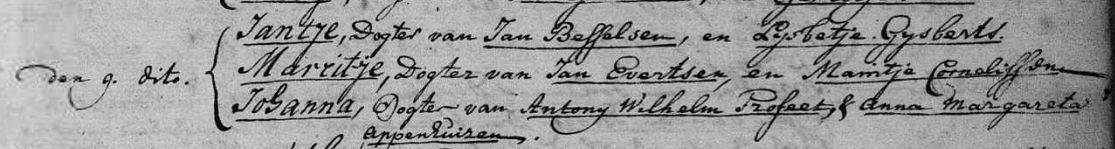 Jantje, Dogter van Jan Besselsen, en Lysbetje Gysberts.
den 9. dito. Marritje, Dogter van Jan Evertsen, en Marritje Cornelissen
Johanna, Dogter van Antony Wilhelm Profeet, & Anna Margareta
Appenhuizen.